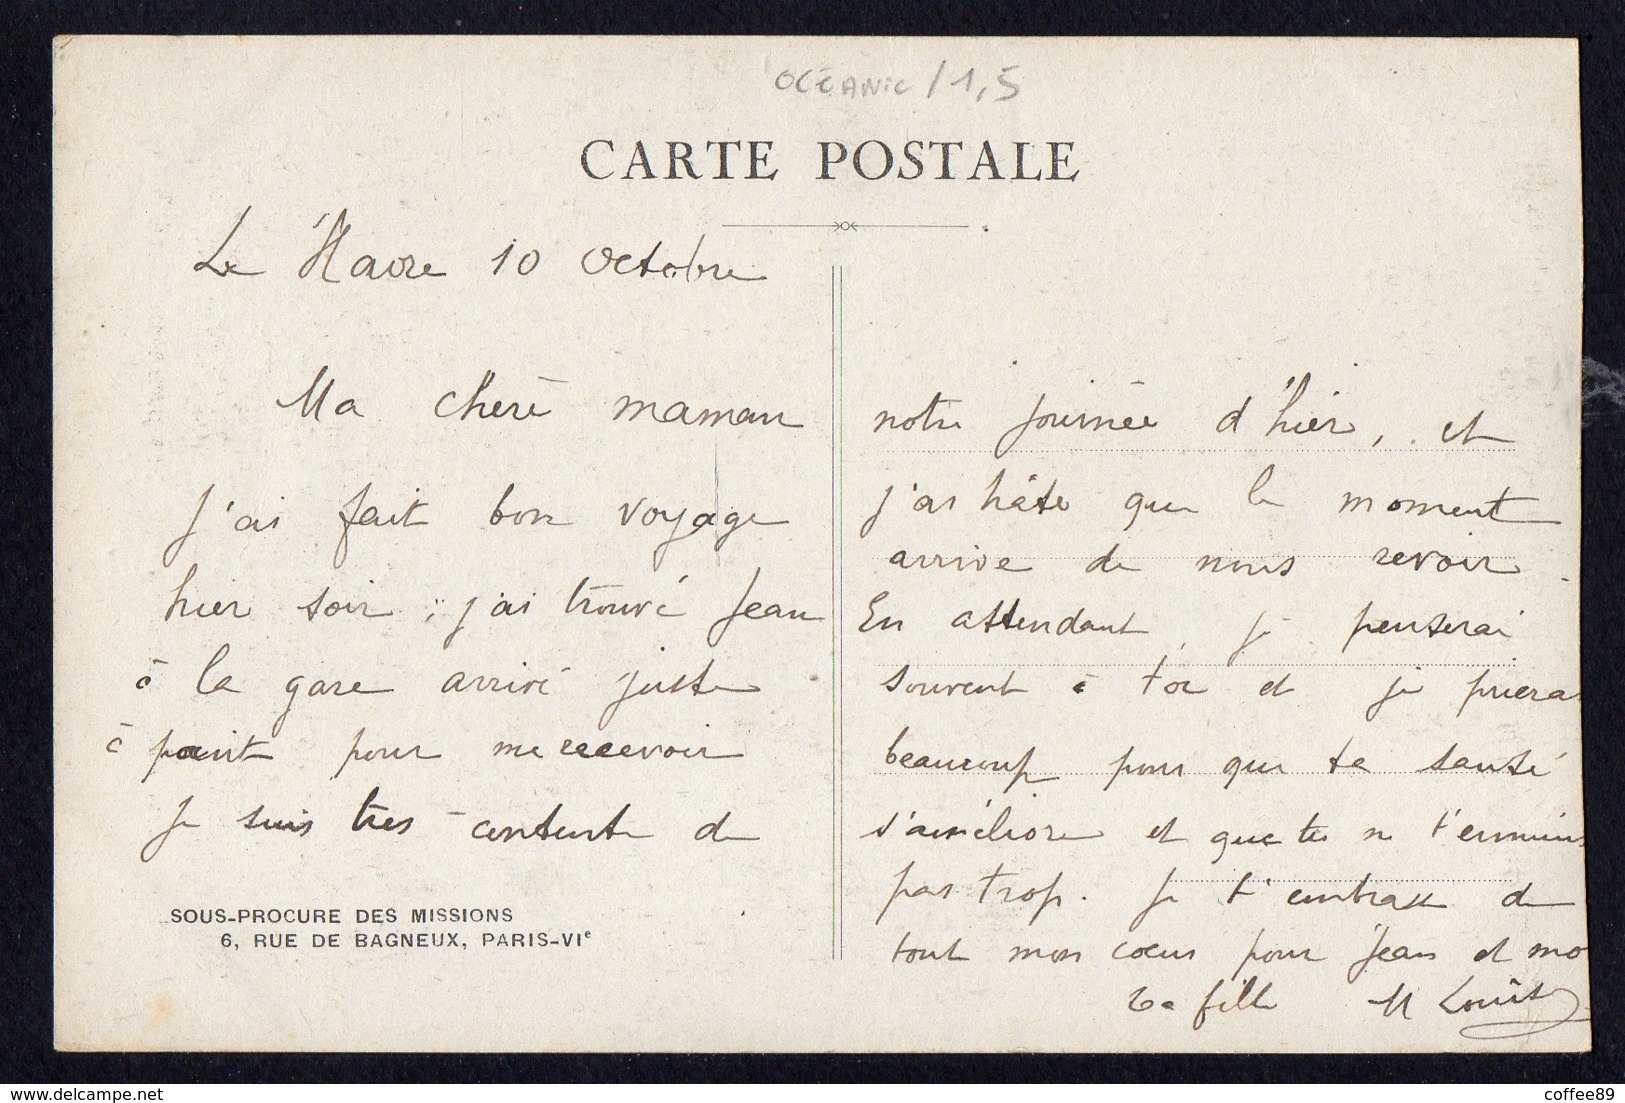 OCÉANIE / 1,5
CARTE POSTALE
Le Havre 10 Octobre
Ma chère maman
J'ai fait bon voyage
hier soir ; j'ai trouvé Jean
à la gare arrivé juste
à point pour me recevoir
Je suis très contente de
SOUS-PROCURE DES MISSIONS
6, RUE DE BAGNEUX, PARIS-VIe
notre journée d'hier, et
j'ai hâte que le moment
arrive de nous revoir.
En attendant, je penserai
souvent à toi et je prierai
beaucoup pour que ta santé
s'améliore et que tu ne t'ennuies
pas trop. Je t'embrasse de
tout mon coeur pour Jean et moi
Ta fille M Louise
delcampe.net
coffee89